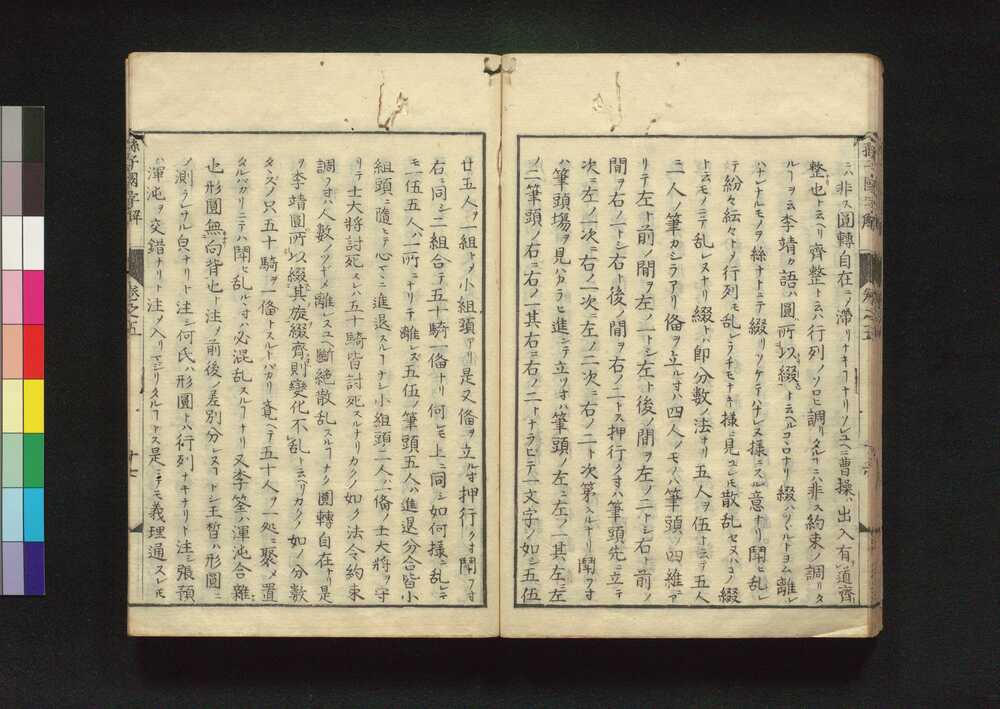 ニハ非ス圓轉自在ニノ滞リナキヿナリソノユヘニ曹操ハ出入有道齊
整也ト云ヘリ齊整ト云ハ行列ノソロヒ調リタルヿニハ非ス約束ノ調リタ
ルヿヲ云李靖カ語ハ圓所以綴ト云ヘルコヽロナリ綴ハツヽルトヨム離レ
ハナレナルモノヲ絲ナトニテ綴リツケテハナレヌ様ニスル意ナリ鬪ヒ乱レ
テ紛々紜々トノ行列モ乱レライモナキ様ニ見ユレトモ散乱セヌハコノ綴
ト云モノニテ乱レヌナリ綴トハ即分数ノ法ナリ五人ヲ伍ト云テ五人
ニ人ノ筆カシラアリ偹ヲ立ルオハ四人ノモノハ筆頭ノ四維ニア
リテ左ト前ノ間ヲ左ノ一トシ左ト後ノ間ヲ左ノ二トシ右ト前ノ
間ヲ右ノ一トシ右ト後ノ間ヲ右ノ二トス押行クオハ筆頭先ニ立テ
次ニ左ノ一次ニ右ノ一次ニ左ノ二次ニ右ノ二ト次第スルヿナリ鬪フオ
ハ筆頭場ヲ見ハカラヒ進ンテ立ツオハ筆頭ノ左ニ左ノ一其左ニ左
ノ二筆頭ノ右ニ右ノ一其右ニ右ノ二トナラビテ一文字ノ如シ五伍
廿五人ヲ一組トメ小組頭アリ是又偹ヲ立ルオ押行クオ鬪フオ
右ニ同シ二組合テ五十騎一偹ナリ何レモ上ニ同シ如何様ニ乱レテ
モ一伍五人ハ一所ニナリテ離レズ五伍ノ筆頭五人ハ進退分合皆小
組頭ニ隨ヒテ心マヽニ進退スルヿナシ小組頭二人ハ一偹ノ士大将ヲ守
リテ士大将討死スレハ五十騎皆討死スルナリカクノ如ク法令約束
調フオハ人数ノツギメ離レスユヘ斷絶散乱スルヿナク圓轉自在ナリ是
ヲ李靖圓所以綴其旋綴齊則變化不乱ト云ヘリカクノ如ノ分数
タヽズノ只五十騎ヲ一偹トスルトバカリ意ヘテ五十人ヲ一処ニ聚メ置
タルバカリニテハ鬪ヒ乱ルヽオハ必混乱スルヿナリ又李筌ハ渾沌合雜
也形圓無向背也ト注ノ前後ノ差別分レヌヿトシ王晳ハ形圓ニ
ノ測ラレサル皃ナリト注シ何氏ハ形圓トハ行列ナキナリト注シ張預
ハ渾沌ヲ交錯ナリト注ノ入リマジリタルヿトス是ニテモ義理通スレトモ
孫子國字解
卷之五